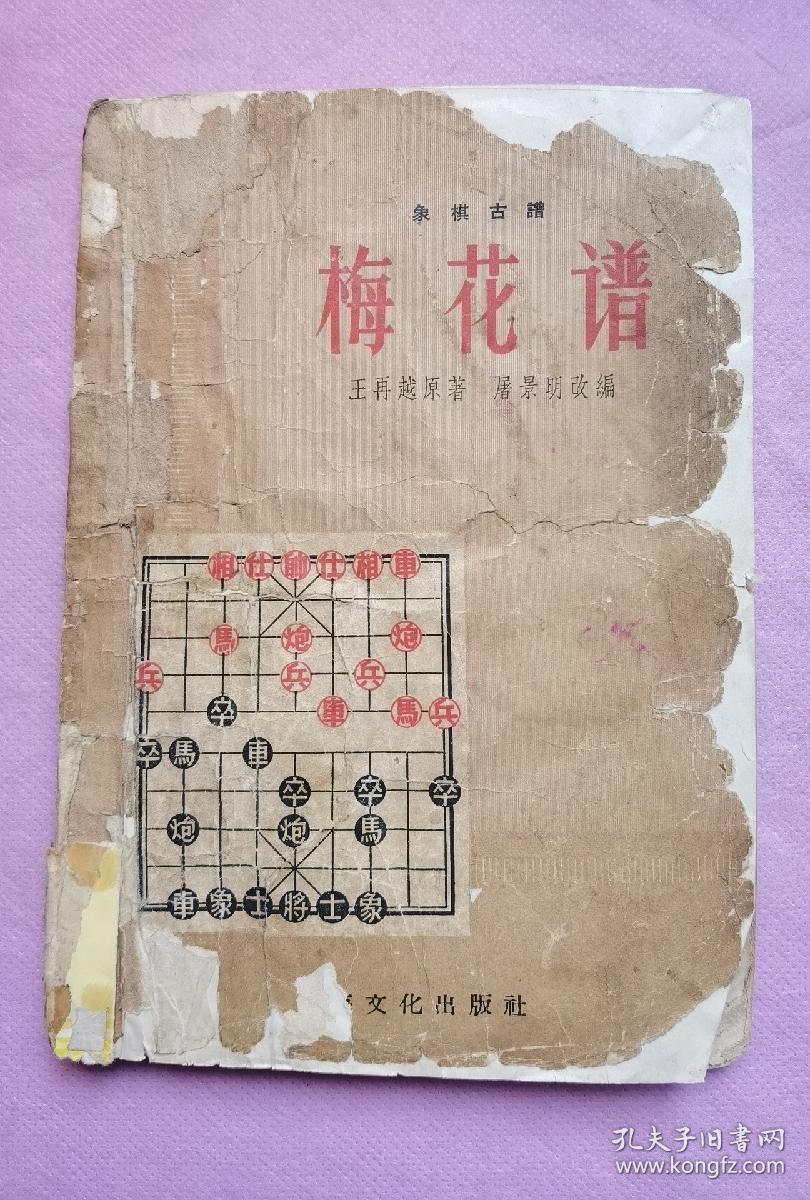 象棋古譜
梅花谱
王再越原著 屠景明改編
相仕帥仕相車
馬炮炮
兵兵兵
卒車馬兵
卒馬車
卒卒卒
炮炮馬
車象士將士象
文化出版社
孔夫子旧書网
www.kongfz.com